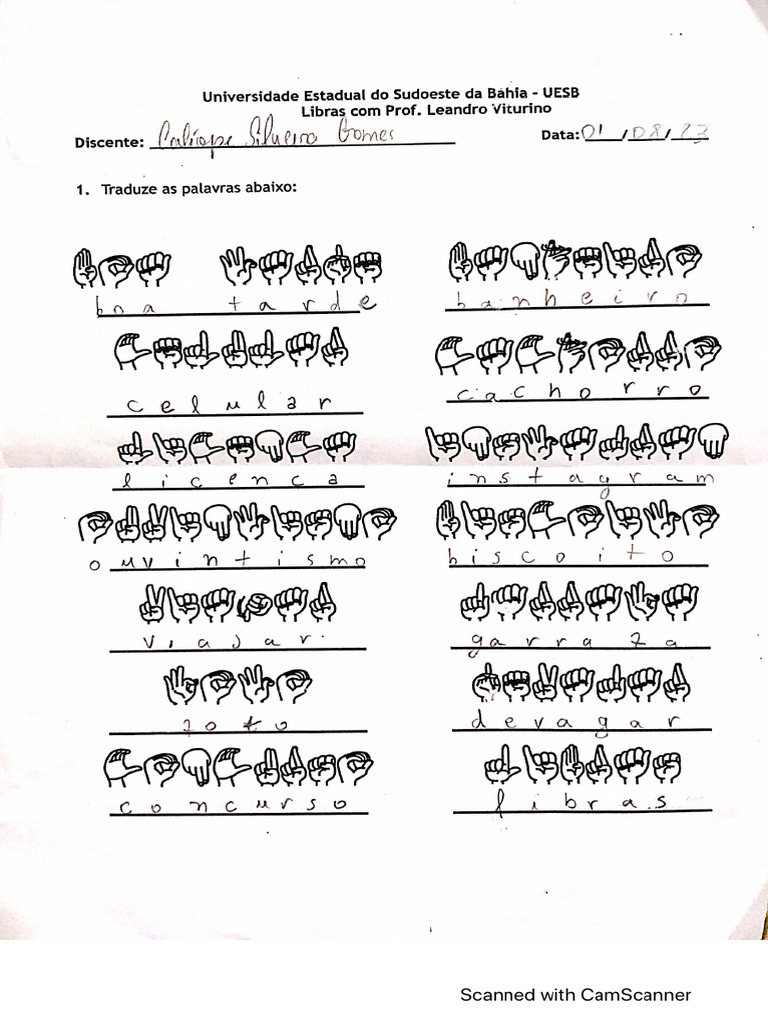 Universidade Estadual do Sudoeste da Bahia - UESB
Libras com Prof. Leandro Viturino
Discente: Calíope Silveira Gomes Data: 01/08/23
1. Traduze as palavras abaixo:
boa tarde
banheiro
celular
cachorro
licenca
instagram
ouvintismo
biscoito
viajar
garra7a
7oto
devagar
concurso
libras
Scanned with CamScanner